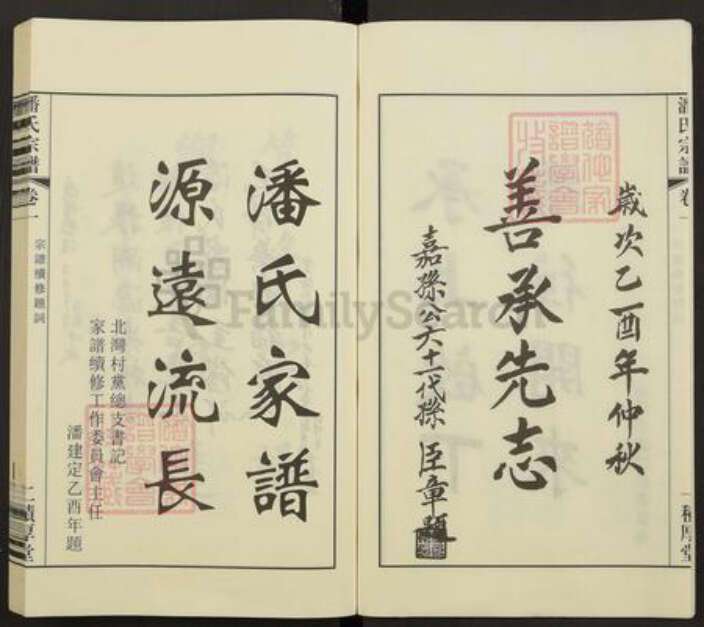 潘氏宗譜
卷
積厚堂
歲次乙酉年仲秋
善承先志
嘉孫公六十一代孫 臣章題
潘氏家譜
源遠流長
北灣村黨總支書記
家譜續修工作委員會主任
潘建定乙酉年題
潘氏宗譜
卷一
宗譜續修題詞
積厚堂
FamilySearch